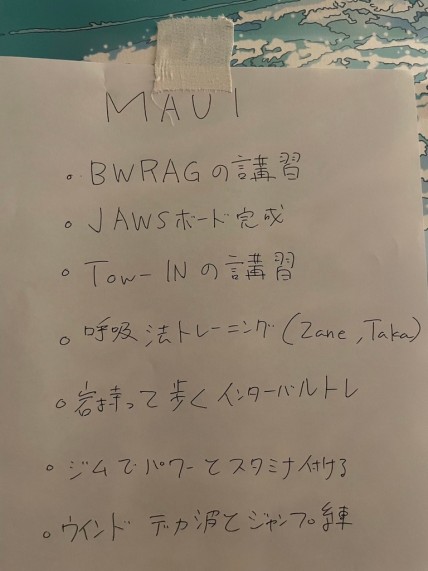 MAUI
。BWRAGの講習
。JAWSボード完成
。Tow-INの講習
。呼吸法トレーニング(Zane,Taka)
。岩持って歩くインターバルトレ
。ジムでパワーとスタミナ付ける
。ウインド デカ波とジャンプ練